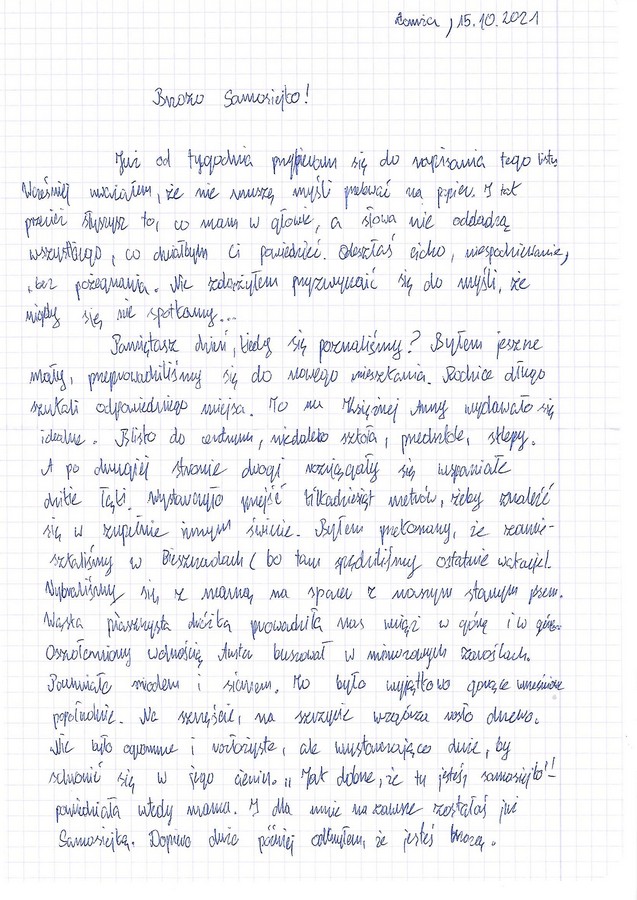 Łomża, 15.10.2021
Brzozo Samosiejko!
Już od tygodnia przypieram się do napisania tego listu.
Wcześniej uważałem, że nie muszę myśli przelewać na papier. I tak
przecież słyszysz to, co mam w głowie, a słowa nie oddadzą
wszystkiego, co chciałbym Ci powiedzieć. Odeszłaś cicho, niespodziewanie,
bez pożegnania. Nie zdążyłem przyzwyczaić się do myśli, że
nigdy się nie spotkamy...
Pamiętasz dzień, kiedy się poznaliśmy? Byłem jeszcze
mały, przeprowadziliśmy się do nowego mieszkania. Rodzice długo
szukali odpowiedniego miejsca. To na Księżnej Anny wydawało się
idealne. Blisko do centrum, niedaleko szkoła, przedszkole, sklepy.
A po drugiej stronie drogi rozciągały się wspaniałe
dzikie łąki. Wystarczyło przejść kilkadziesiąt metrów, żeby znaleźć
się w zupełnie innym świecie. Byłem przekonany, że zamie-
szkaliśmy w Bieszczadach (bo tam spędziliśmy ostatnie wakacje).
Wybraliśmy się z mamą na spacer z naszym starym psem.
Wąska piaszczysta dróżka prowadziła nas wciąż w górę i w górę.
Oszołomiony wolnością buszował w zaroślach.
Pachniało miodem i sianem. To było wyjątkowo gorące wrześniowe
popołudnie. Na szczęście, na szczycie wzgórza rosło drzewo.
Nie było ogromne i rozłożyste, ale wystarczająco duże, by
schronić się w jego cieniu. „Jak dobrze, że tu jesteś, samosiejko!"
powiedziała wtedy mama. I dla mnie na zawsze zostałaś już
Samosiejką. Dopiero dużo później odkryłem, że jesteś brzozą.